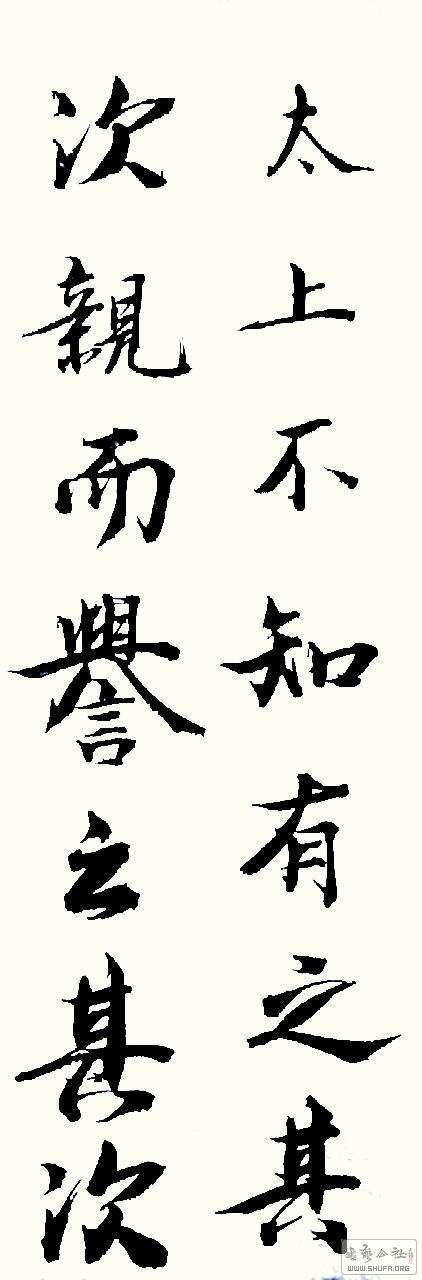 太上不知有之其
次親而譽之其次
書藝公社
WWW.SHUFA.ORG